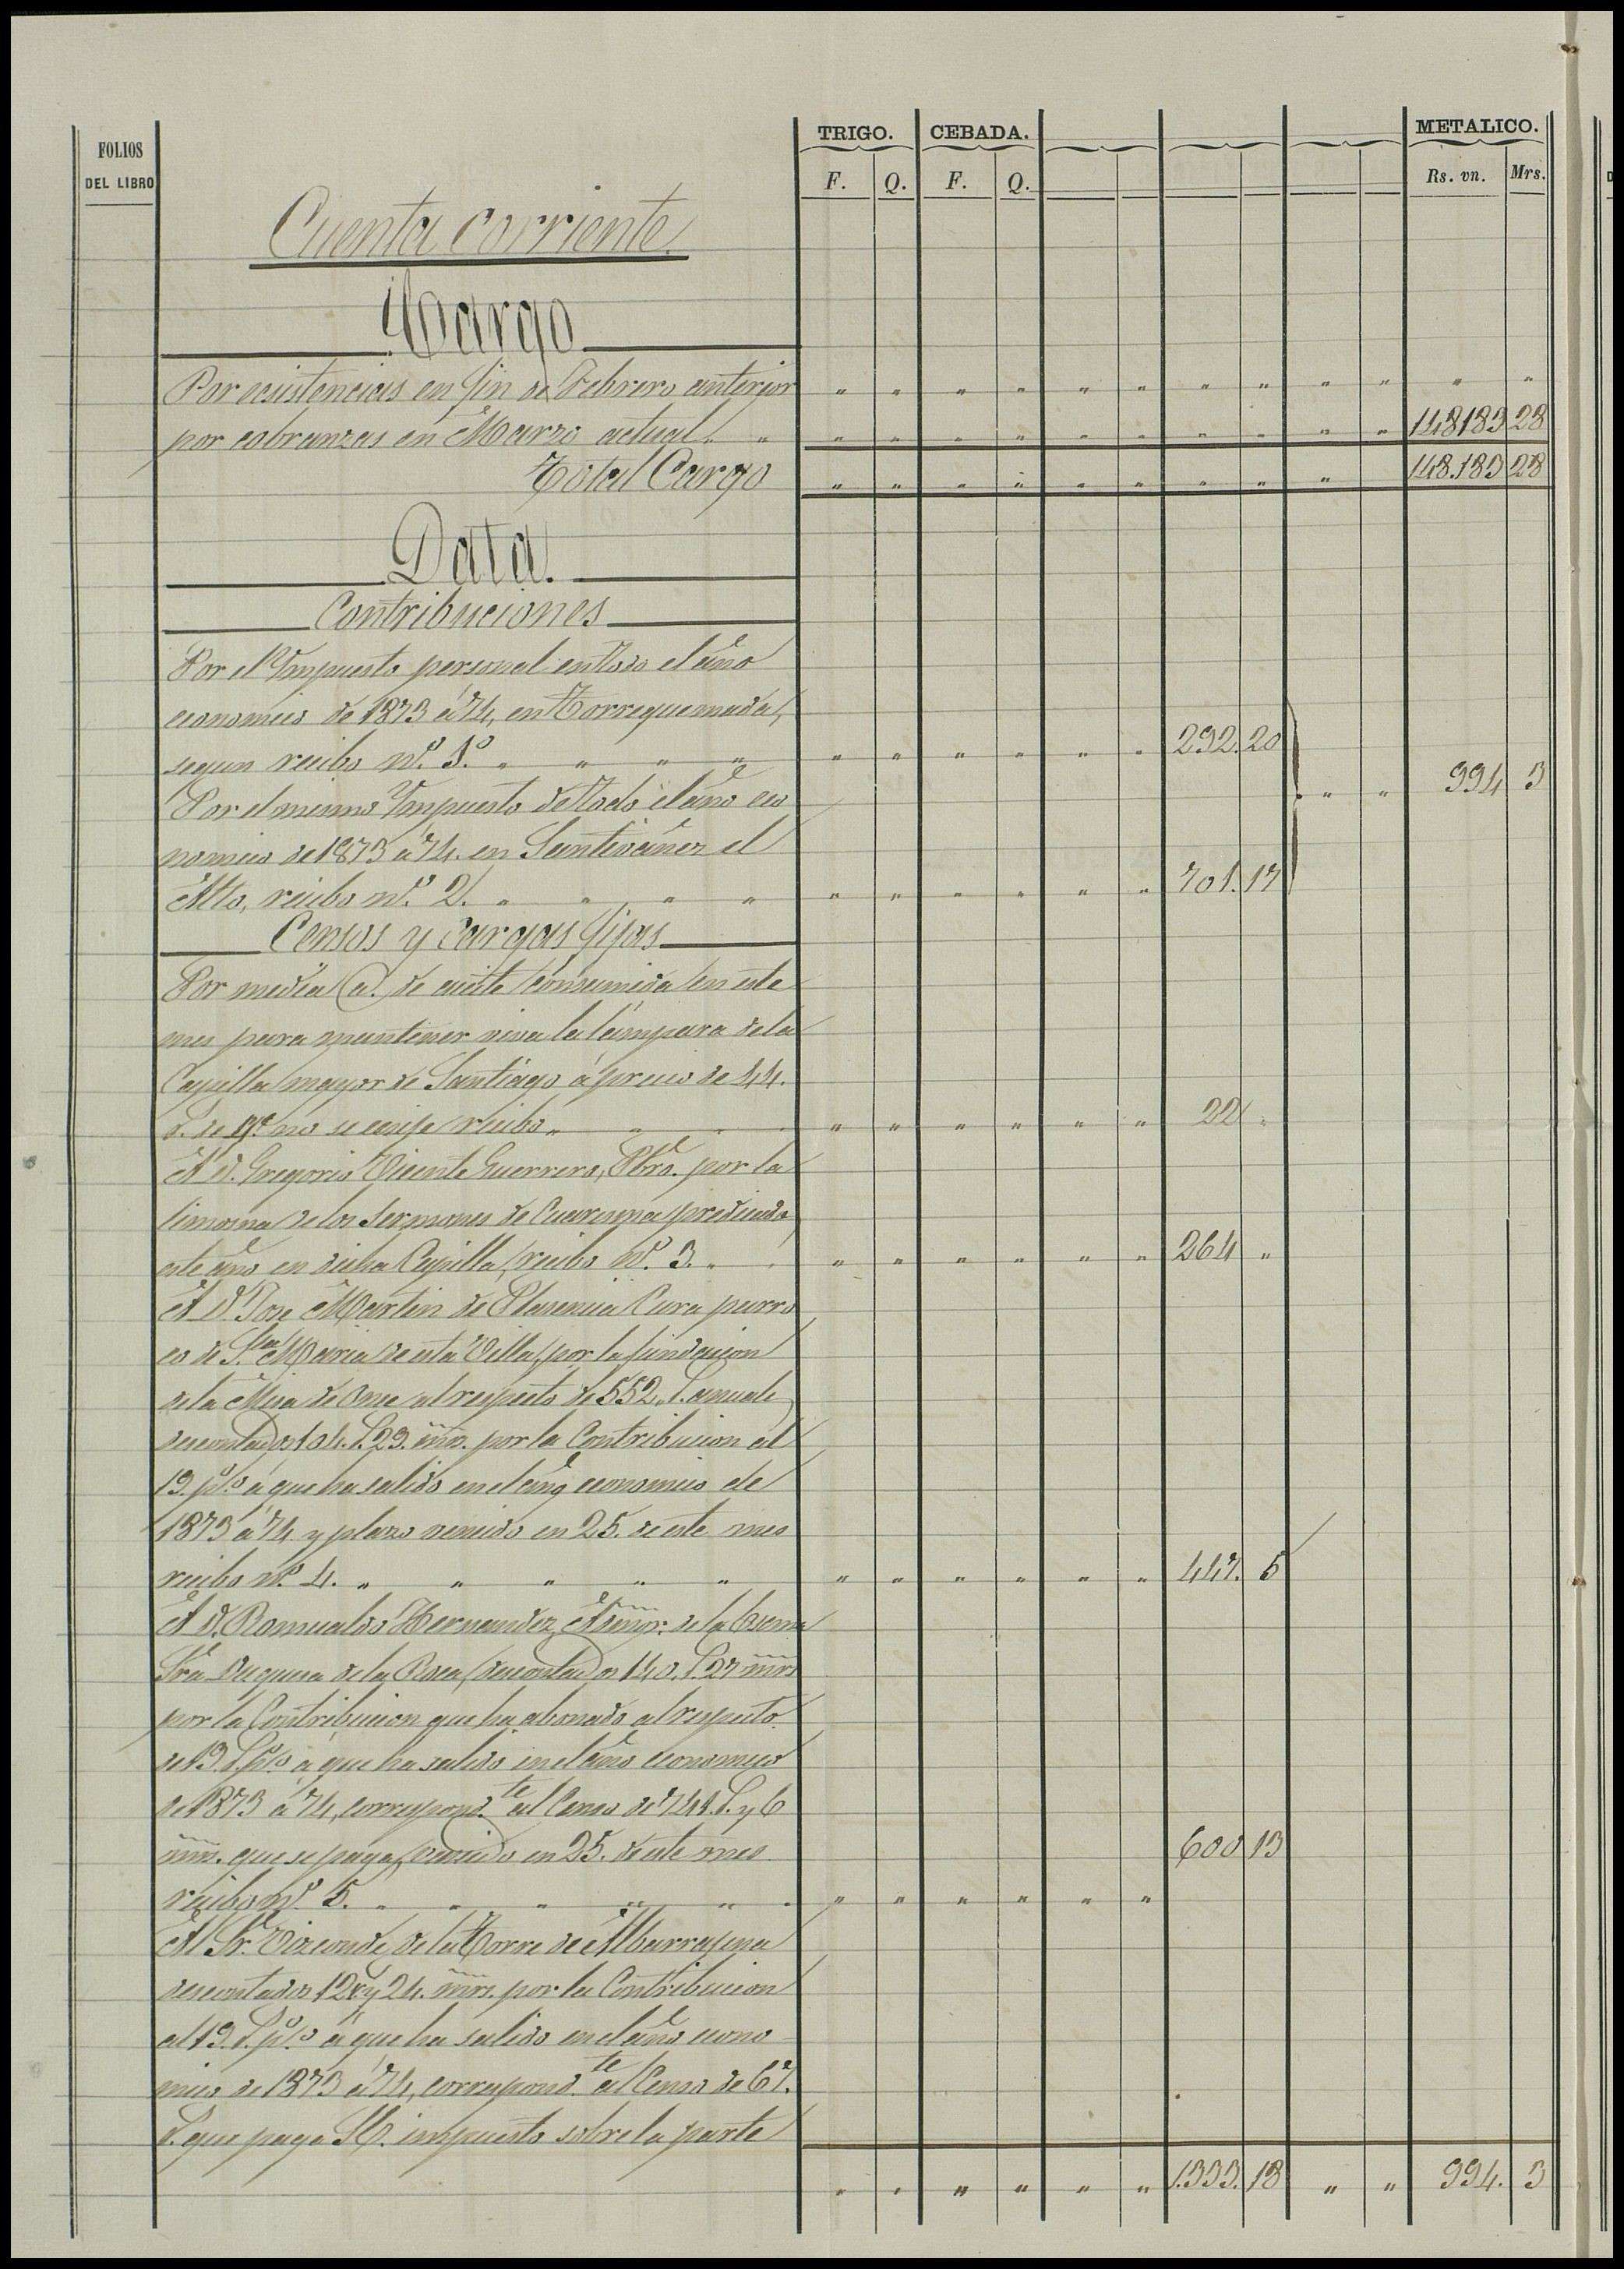 TRIGO. CEBADA. METALICO.
FOLIOS DEL LIBRO
F. Q. F. Q. Rs. vn. Mrs.
Cuenta corriente.
Cargo
Por ecsistencias en fin de Febrero anterior " " " " " " " " " " " "
por cobranzas en Marzo actual " " " " " " " " " " " " 148183 28
Total Cargo " " " " " " " " " 148.183 28
Data.
Contribuciones
Por el Impuesto personal en todo el año
economico de 1873 á 74, en Torrequemada,
segun recibo nº. 1º. " " " " " " " " " " 292. 20
Por el mismo Impuesto de todo el año eco " " 994 3
nomico de 1873 á 74. en Santivañez el
Alto, recibo nº. 2. " " " " " " " " " " 701. 17
Censos y cargas fijas
Por media @. de aceite consumida en este
mes para mantener viva la lámpara de la
Capilla mayor de Santiago á precio de 44.
no se exije recibo " " " " " " " " 22 "
A D. Gregorio Vicente Guerrero, Pbro. por la
limosna de los Sermones de Cuaresma predicado
este año en dicha Capilla, recibo nº. 3. " " " " " " " 264 "
A D. Jose Martin de Plasencia Cura parro
co de Sta. Maria de esta Villa, por la fundacion
de la Misa de Once al respecto de 552. r. anuale
descontados 104. r. 29. mrs. por la Contribucion al
19. p%. á que ha salido en el año economico de
1873 á 74. y plazo vencido en 25. de este mes
recibo nº. 4. " " " " " " " " " " " 447. 5
A D. Romualdo Hernandez Admor. de la Excma
Sra Duquesa de la Roca, descontados 140. r. 27 mrs
por la Contribucion que ha abonado al respecto
de 19. r. p%. á que ha salido en el año economico
de 1873 á 74, correspond.te al Censo de 741. r. y 6
mrs. que se paga, vencido en 25. de este mes 600 13
recibo nº. 5. " " " " " " " " " " " "
Al Sr. Vizconde de la Torre de Albarrajena
descontados 12 r. y 24. mrs. por la Contribucion
al 19. r. p%. á que ha salido en el año econo
mico de 1873 á 74, correspond.te al Censo de 67.
r. que paga S.E. impuesto sobre la parte
" " " " " " 1.333. 18 " " 994. 3